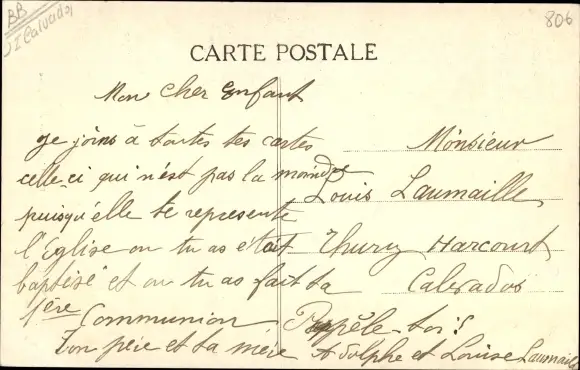 BB
Calvados
806
CARTE POSTALE
Mon cher Enfant
Je joins à toutes tes cartes
celle-ci qui n'est pas la moindre
puisqu'elle te represente
l'Eglise ou tu as était
baptisé et ou tu as fait ta
1ère Communion Rappèle-toi !
Ton père et ta mère Adolphe et Louise Laumaille
Monsieur
Louis Laumaille
Thury Harcourt
Calvados